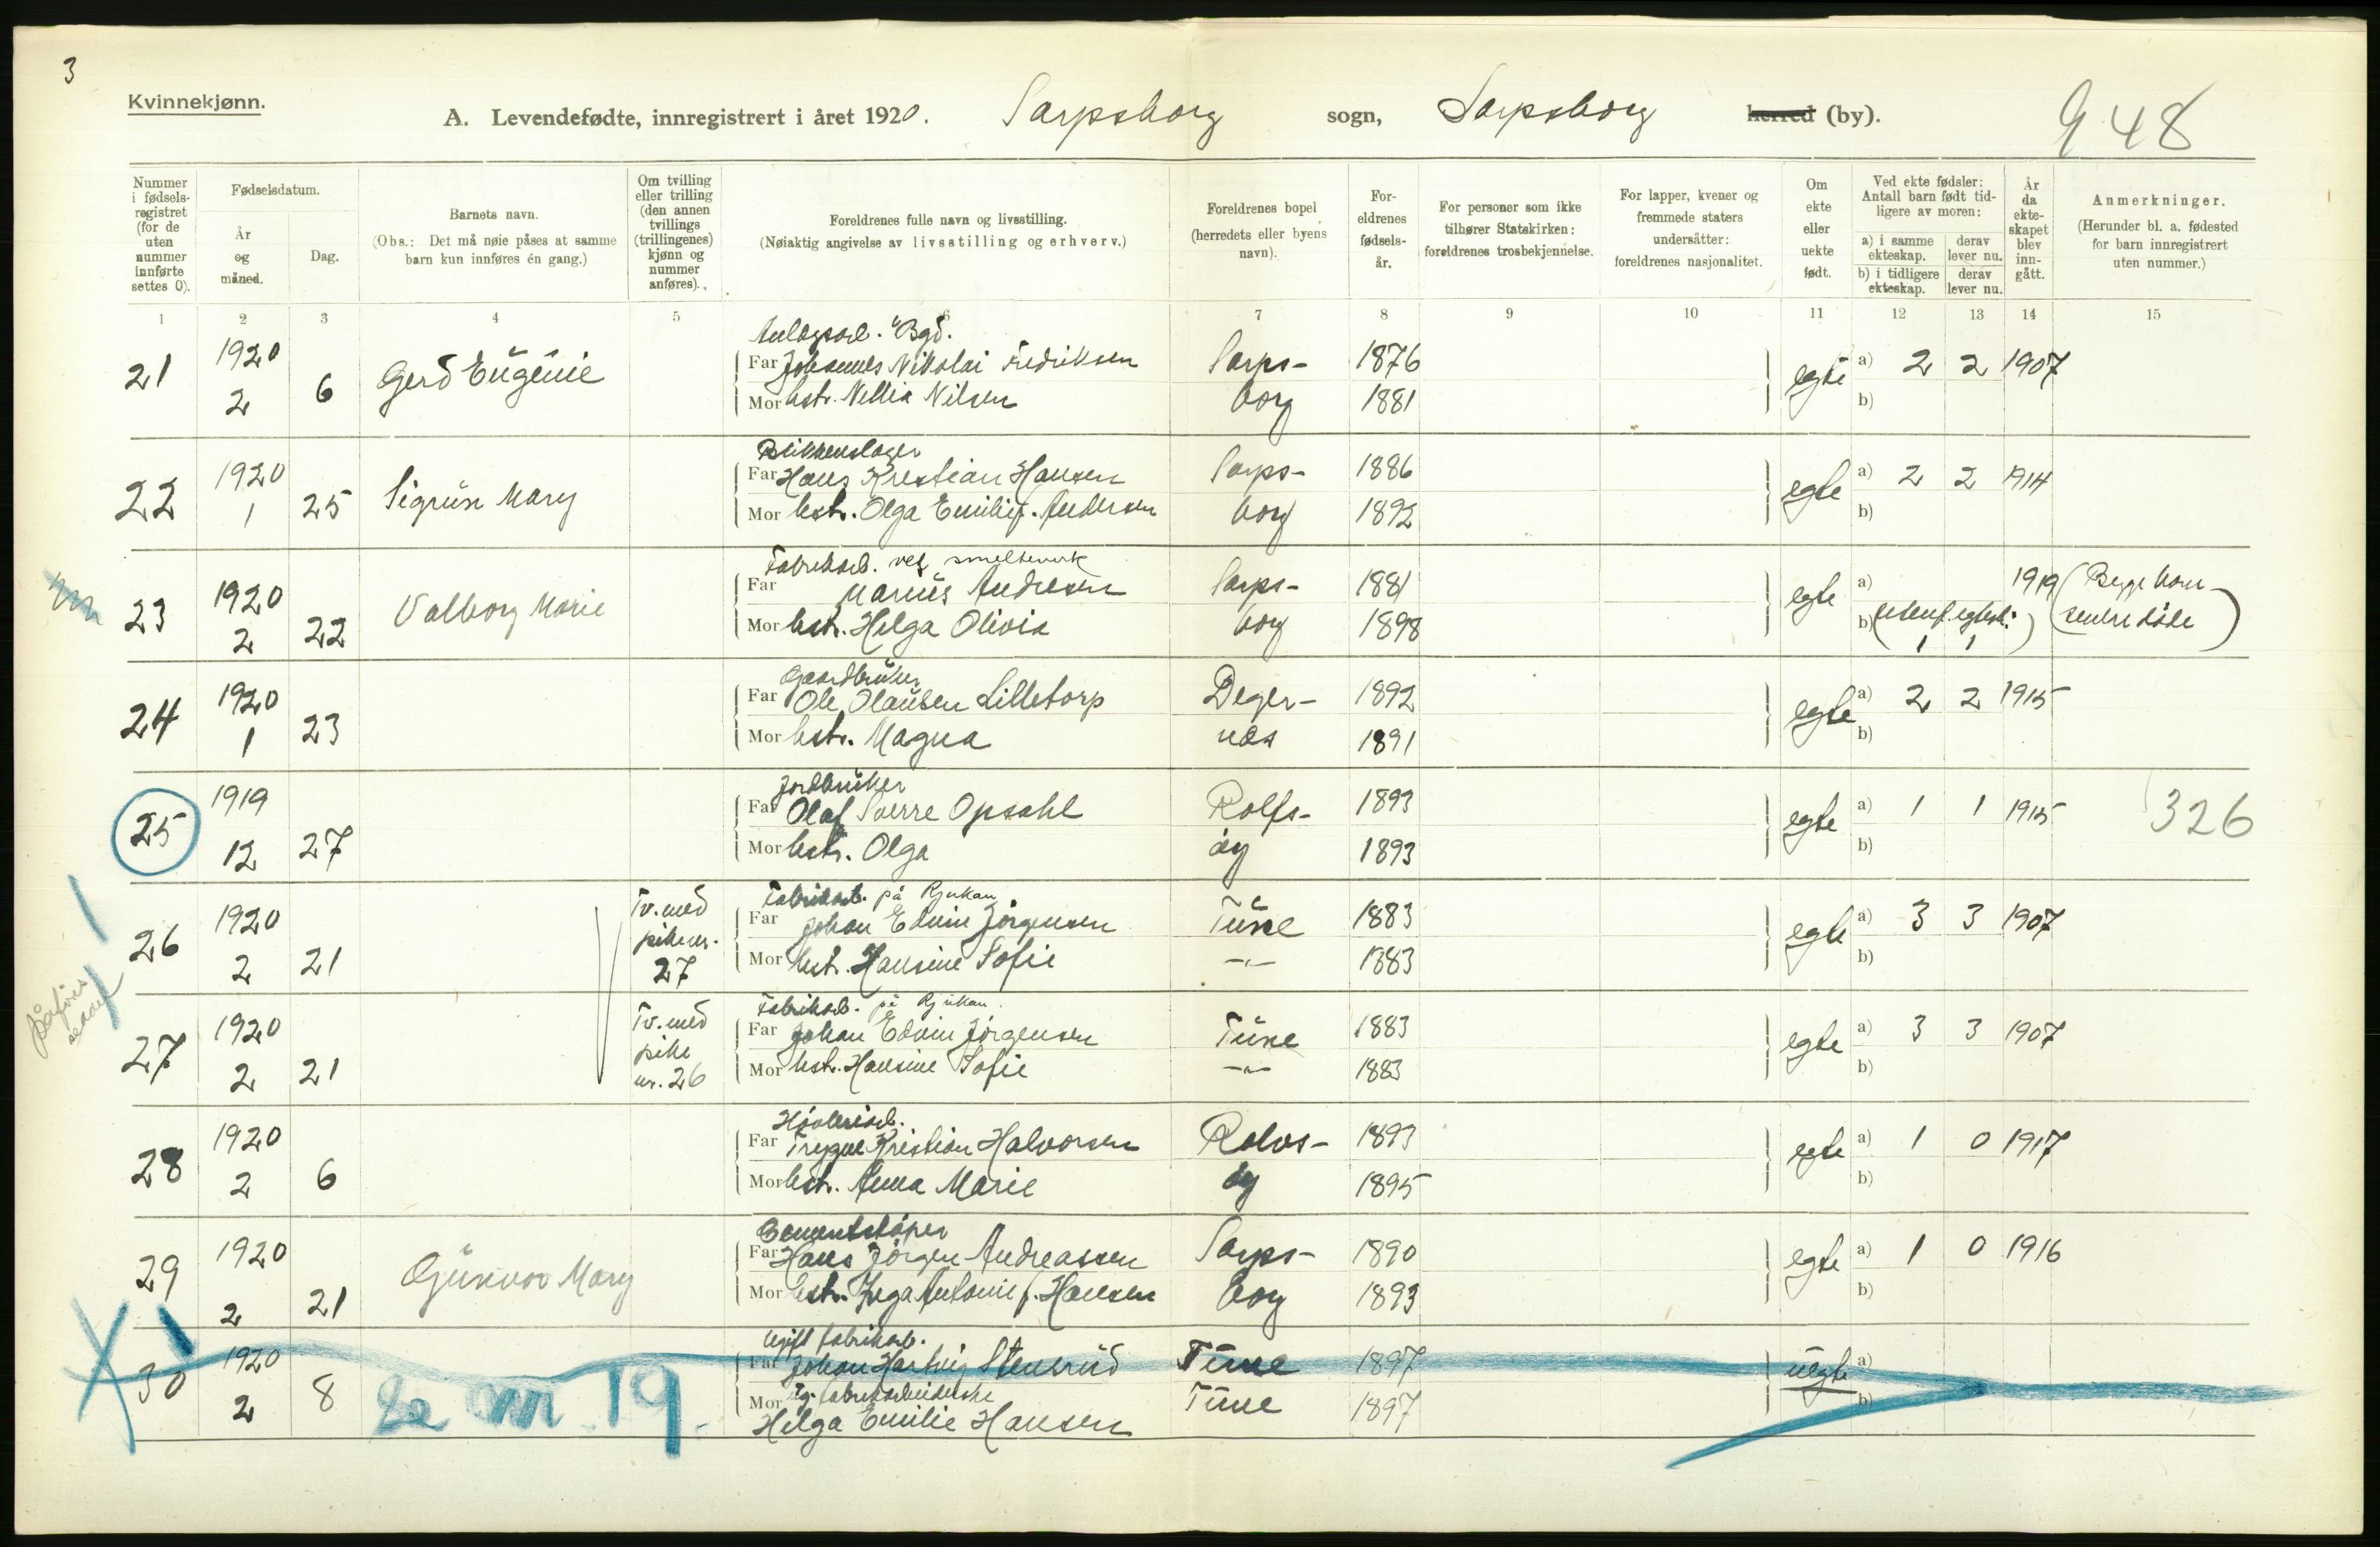 3
Kvinnekjønn.
A. Levendefødte, innregistrert i året 1920. Sarpsborg sogn, Sarpsborg herred (by).
48
Nummer i fødsels-registret (for de uten nummer innførte settes 0).
Fødselsdatum.
År og måned.
Dag.
Barnets navn.
(Obs.: Det må nøie påses at samme barn kun innføres én gang.)
Om tvilling eller trilling (den annen tvillings (trillingenes) kjønn og nummer anføres).
Foreldrenes fulle navn og livsstilling.
(Nøiaktig angivelse av livsstilling og erhverv.)
Foreldrenes bopel (herredets eller byens navn).
For-eldrenes fødsels-år.
For personer som ikke tilhører Statskirken: foreldrenes trosbekjennelse.
For lapper, kvener og fremmede staters undersåtter: foreldrenes nasjonalitet.
Om ekte eller uekte født.
Ved ekte fødsler: Antall barn født tid-ligere av moren:
a) i samme ekteskap.
derav lever nu.
b) i tidligere ekteskap.
derav lever nu.
År da ekte-skapet blev inn-gått.
Anmerkninger.
(Herunder bl. a. fødested for barn innregistrert uten nummer.)
1 2 3 4 5 6 7 8 9 10 11 12 13 14 15
Anlægsarb. Bgd.
21 1920 Gerd Eugenie Far Johannes Nikolai Fredriksen Sarps- 1876 egte a) 2 2 1907
2 6 Mor hstr. Nellia Nilsen borg 1881 b)
Blikkenslager
22 1920 Sigrun Mary Far Hans Krestian Hansen Sarps- 1886 egte a) 2 2 1914
1 25 Mor hstr. Olga Emilie f. Andersen borg 1892 b)
Fabrikarb. ved smelteverk
23 1920 Valborg Marie Far Marius Andresen Sarps- 1881 egte a) 1919 (Begge barn
2 22 Mor hstr. Helga Olivia borg 1898 b) (utenf. egtesk: 1 1) senere døde)
Gaardbruker
24 1920 Far Ole Olausen Lilletorp Deger- 1892 egte a) 2 2 1915
1 23 Mor hstr. Magna næs 1891 b)
Jordbruker
25 1919 Far Olaf Sverre Opsahl Rolfs- 1893 egte a) 1 1 1915 326
12 27 Mor hstr. Olga øy 1893 b)
Fabrikarb. på Rjukan
26 1920 Tv. med Far Johan Edvin Jørgensen Tune 1883 egte a) 3 3 1907
2 21 pike nr. 27 Mor hstr. Hansine Sofie -"- 1883 b)
Fabrikarb. på Rjukan.
27 1920 Tv. med Far Johan Edvin Jørgensen Tune 1883 egte a) 3 3 1907
2 21 pike nr. 26 Mor hstr. Hansine Sofie -"- 1883 b)
Høvleriarb.
28 1920 Far Trygve Kristian Halvorsen Rolvs- 1893 egte a) 1 0 1917
2 6 Mor hstr. Anna Marie øy 1895 b)
Cementstøper
29 1920 Gunvor Mary Far Hans Jørgen Andreassen Sarps- 1890 egte a) 1 0 1916
2 21 Mor hstr. Inga Antonie f. Hansen borg 1893 b)
Ugift fabrikarb.
30 1920 Far Johan Hartvig Stensrud Tune 1897 uegte a)
2 8 Se nr. 19. Mor Ug. fabrikarbeiderske Tune 1897 b)
Helga Emilie Hansen